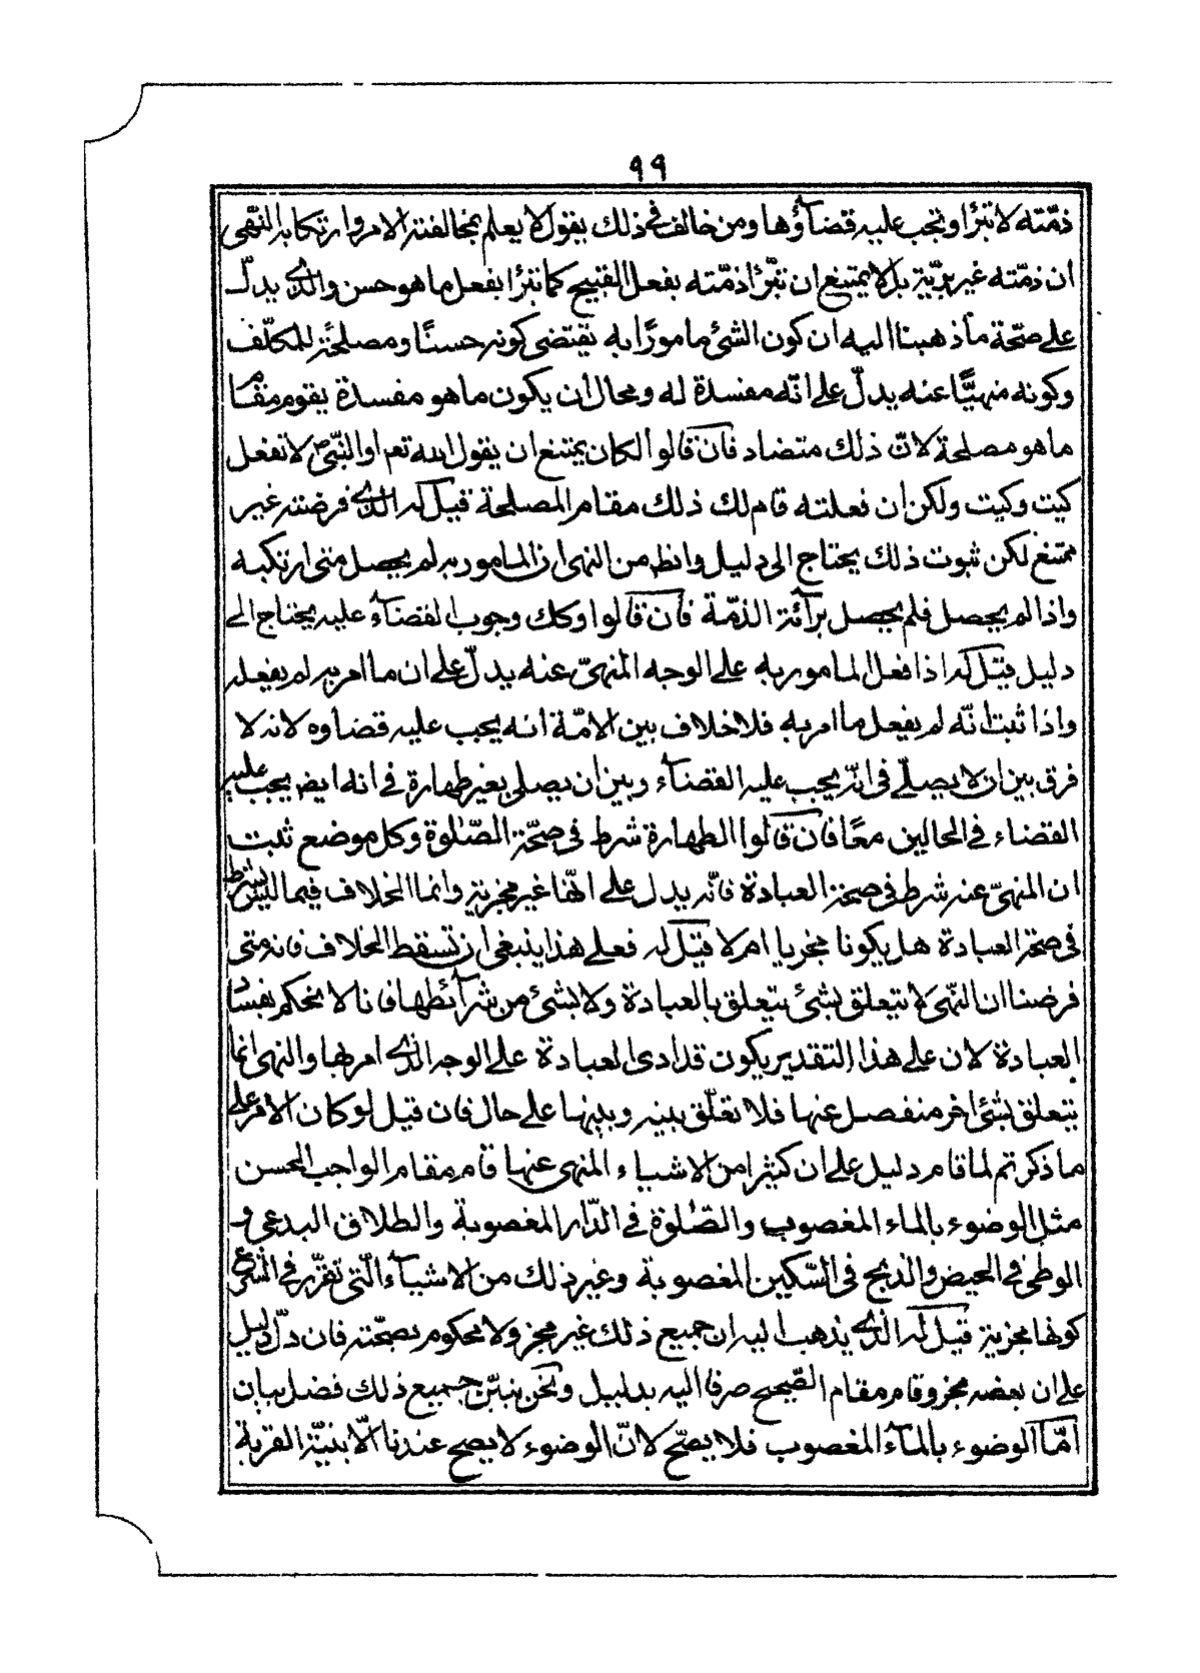 ٩٩
ذمّته لا تبرٔا ويجب عليه قضآؤها ومن خالف فى ذلك يقول لا يعلم بمخالفته الامر وارتكابه النّهى
ان ذمّته غير بريّة بل لا يمتنع ان تبّرٔا ذمّته بفعل القبيح كما تبرٔا بفعل ما هو حسن والذى يدلّ
على صحّة ما ذهبنا اليه ان كون الشئ مامورًا به يقتضى كونه حسنًا ومصلحة للمكلّف
وكونه منهيًّا عنه يدلّ على انّه مفسدة له ومحال ان يكون ما هو مفسدة يقوم مقام
ما هو مصلحة لانّ ذلك متضاد فان قالوا لكان يمتنع ان يقول الله تعم او النّبىّ ص لا تفعل
كيت وكيت ولكن ان فعلته قام لك ذلك مقام المصلحة قيل له الذى فرضته غير
ممتنع لكن ثبوت ذلك يحتاج الى دليل وانظم من النهى ان المامور به لم يحصل متى ارتكبه
واذا لم يحصل فلم يحصل برآئة الذمّة فان قالوا وكك وجوب القضآء عليه يحتاج الى
دليل قيل له اذا فعل المامور به على الوجه المنهىّ عنه يدلّ على ان ما امر به لم يفعله
واذا ثبت انّه لم يفعل ما امر به فلا خلاف بين الامّة انه يجب عليه قضاوه لانه لا
فرق بين ان لا يصلّى فى انّه يجب عليه القضآء وبين ان يصلى بغير طهارة فى انه ايض يجب عليه
القضاء فى الحالين معًا فان قالوا الطهارة شرط فى صحّة الصّلوة وكل موضع ثبت
ان المنهىّ عنه شرط فى صحة العبادة فانّه يدل على انّها غير مجزية وانما الخلاف فيما ليس بشرط
فى صحة العبادة هل يكونا مجزيا ام لا قيل له فعلى هذا ينبغى ان تسقط الخلاف فانه متى
فرضنا ان النّهى لا يتعلق بشئ يتعلق بالعبادة ولا بشئ من شرآئطها فانا لا نحكم بفساد
العبادة لان على هذا التقدير يكون قد ادى العبادة على الوجه الذى امر بها والنهى انما
يتعلق بشئ اخر منفصل عنها فلا تعلّق بينه وبينها على حال فان قيل لو كان الامر على
ما ذكرتم لما قام دليل على ان كثيرا من الاشياء المنهى عنها قام مقام الواجب الحسن
مثل الوضوء بالماء المغصوب والصّلوة فى الدّار المغصوبة والطلاق البدعى و
الوطى فى الحيض والذبح فى السّكين المغصوبة وغير ذلك من الاشيآء الّتى تقرّر فى الشرع
كونها مجزية قيل له الذى يذهب اليه ان جميع ذلك غير مجز ولا محكوم بصحّته فان دلّ دليل
على ان بعضه مجز وقام مقام الصّحيح صرفا اليه بدليل ونحن نبيّن جميع ذلك فضل بيان
امّا الوضوء بالمآء المغصوب فلا يصحّ لانّ الوضوء لا يصح عندنا الّا بنيّة القربة